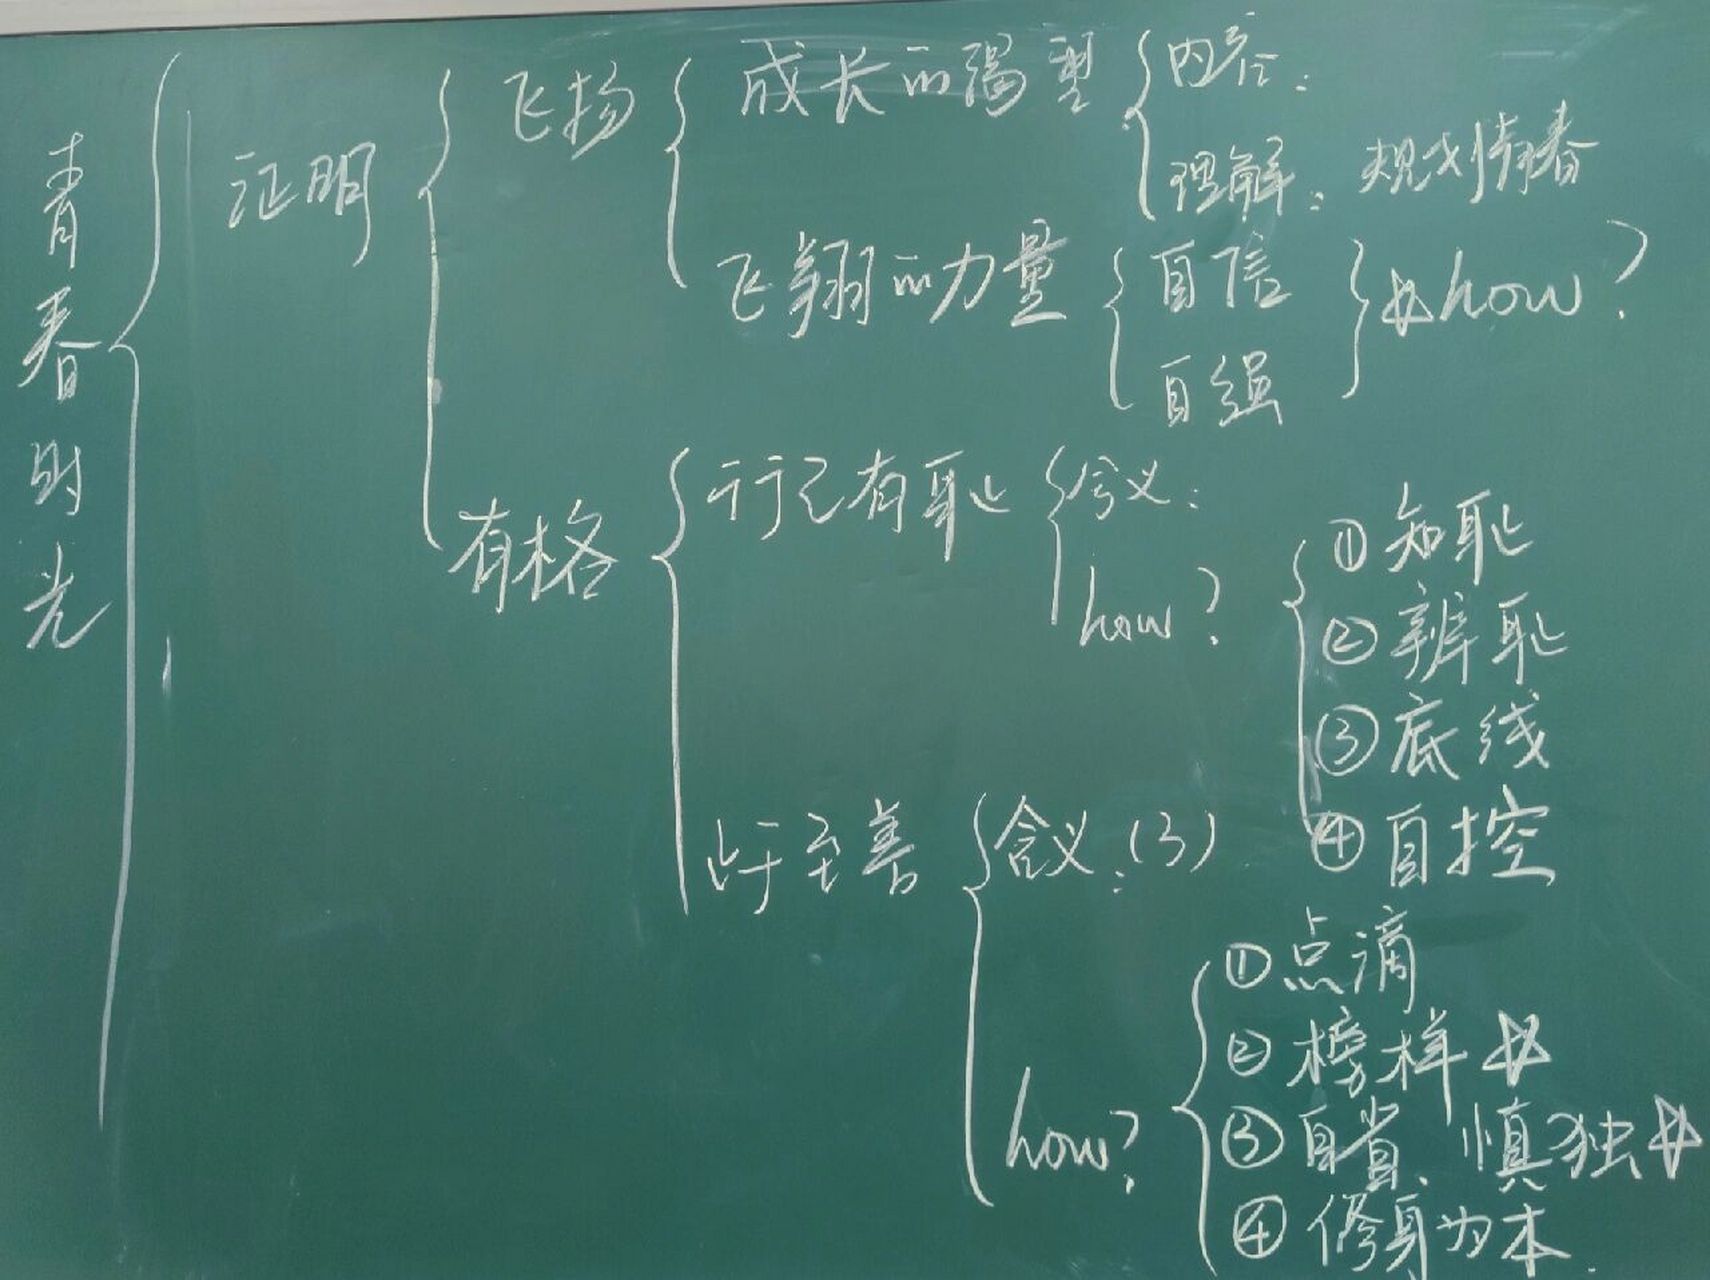 青春时光
证明
飞扬
成长的渴望
内容:
理解: 规划青春
飞翔的力量
自信
自强
☆how?
有格
行己有耻
含义:
how?
①知耻
②辨耻
③底线
④自控
止于至善
含义:(3)
how?
①点滴
②榜样☆
③自省、慎独☆
④修身为本.